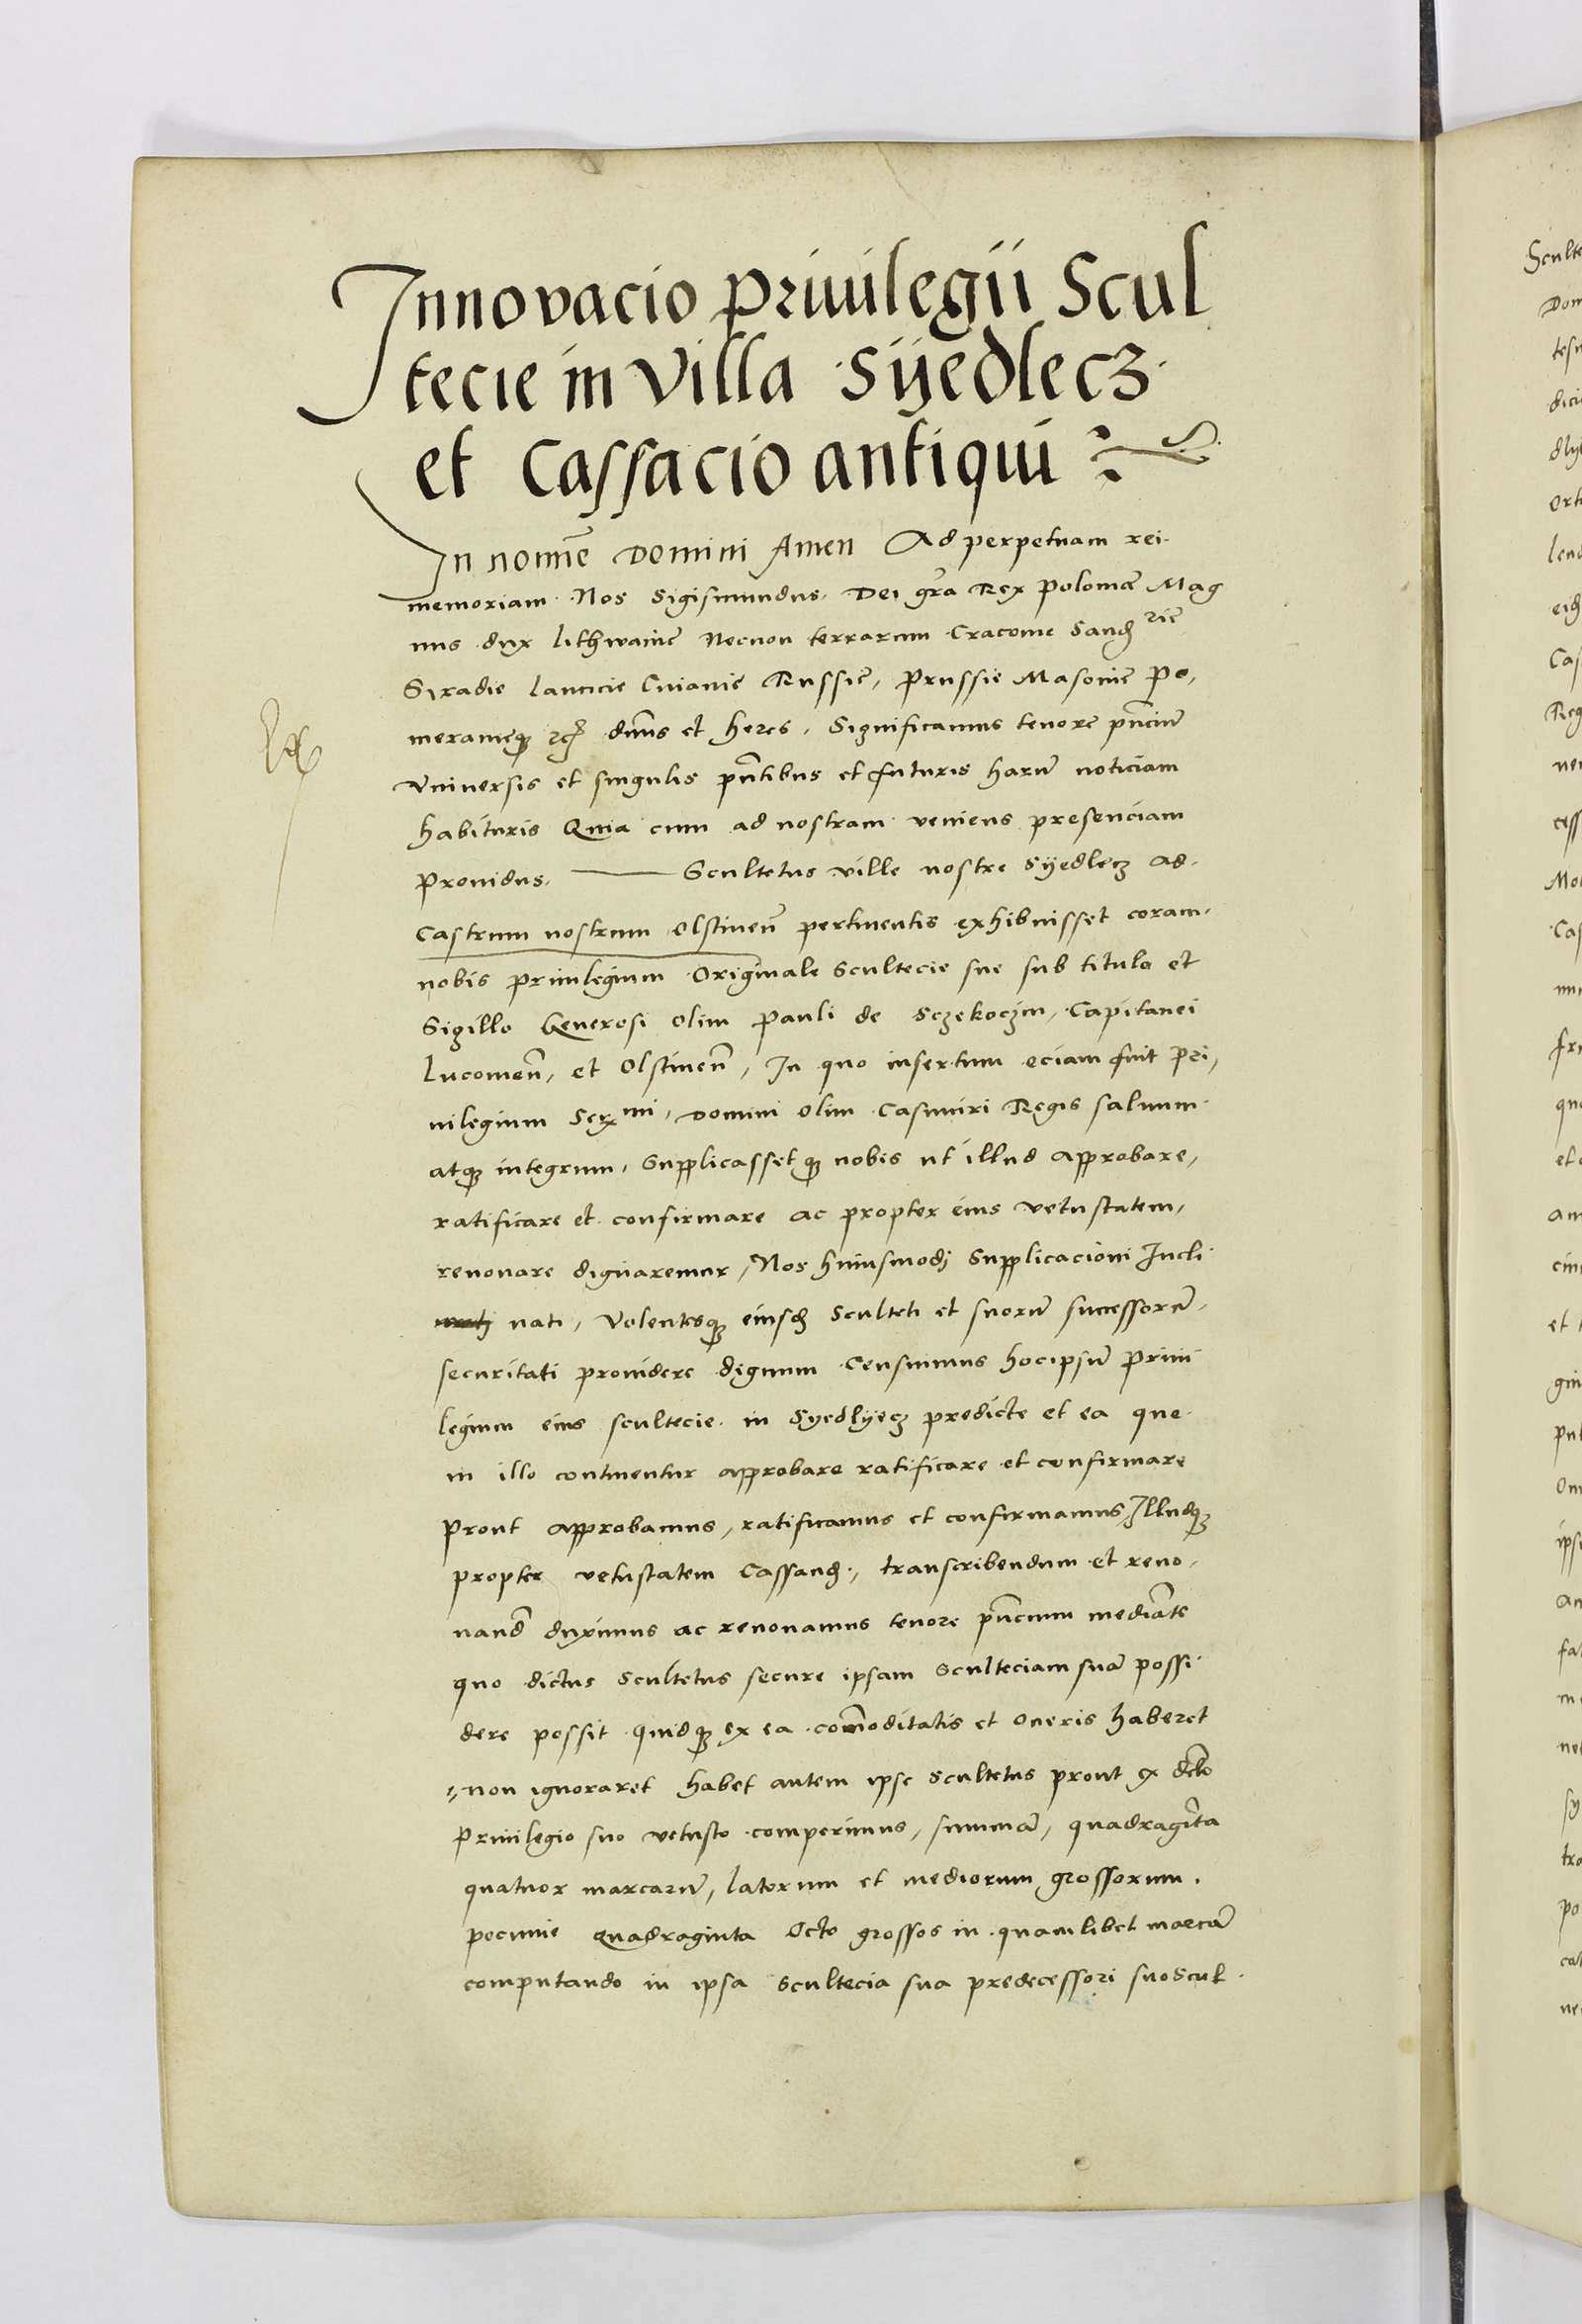 Innovacio privilegii Scul
tecie in villa Sÿedlecz
et Cassacio antiqui
In nomīe Domini Amen Ad perpetuam rei
memoriam Nos Sigismundus Dei grā Rex Polonie Mag
nus dux lithwanie Necnon terrarum Cracouie Sand rie
Siradie lancicie Cuiauie Russie, Prussie Masouie Po,
meranieqз dnns et heres. Significamus tenore pn̄ciū
Vniuersis et singulis pn̄tibus et futuris harū noticiam
habituris Quia cum ad nostram veniens presenciam
Prouidus Scultetus ville nostre Sÿedlecz ad
Castrum nostrum Olstinen̄ pertinentis exhibuisset coram
nobis Priuilegium Originale Scultecie sue sub titulo et
Sigillo Generosi olim Pauli de Sczekoczin, Capitanei
Lucomen̄, et Olstinen̄, In quo insertum eciam fuit pri,
uilegium Sermi, Domini olim Casimiri Regis saluum
atqз integrum, Supplicassetqз nobis ut illud approbare,
ratificare et confirmare ac propter eius vetustatem,
renouare dignaremur, Nos huiusmodi Supplicacioni Incli
nati, Volentesqз eiusd Sculteti et suorū successorū,
securitati prouidere dignum Censuimus hocipsū Priui
legium eius scultecie in Syedlÿecz predicte et ea que
in illo continentur approbare ratificare et confirmare
Prout approbamus, ratificamus et confirmamus, Illudqз
propter vetustatem Cassand, transcribendum et reno,
uand duximus ac renouamus tenore pn̄cium mediāte
quo dictus Scultetus secure ipsam Sculteciam suā possi
dere possit quidqз ex ea com̄oditatis et Oneris haberet
non ignoraret habet autem ipse Scultetus prout ex dcto
Priuilegio suo vetusto comperimus, summā, quadragīta
quatuor marcarū, latorum et mediorum grossorum.
pecunie Quadraginta Octo grossos in quamlibet marcā
computando in ipsa Scultecia sua predecessori suo Scul